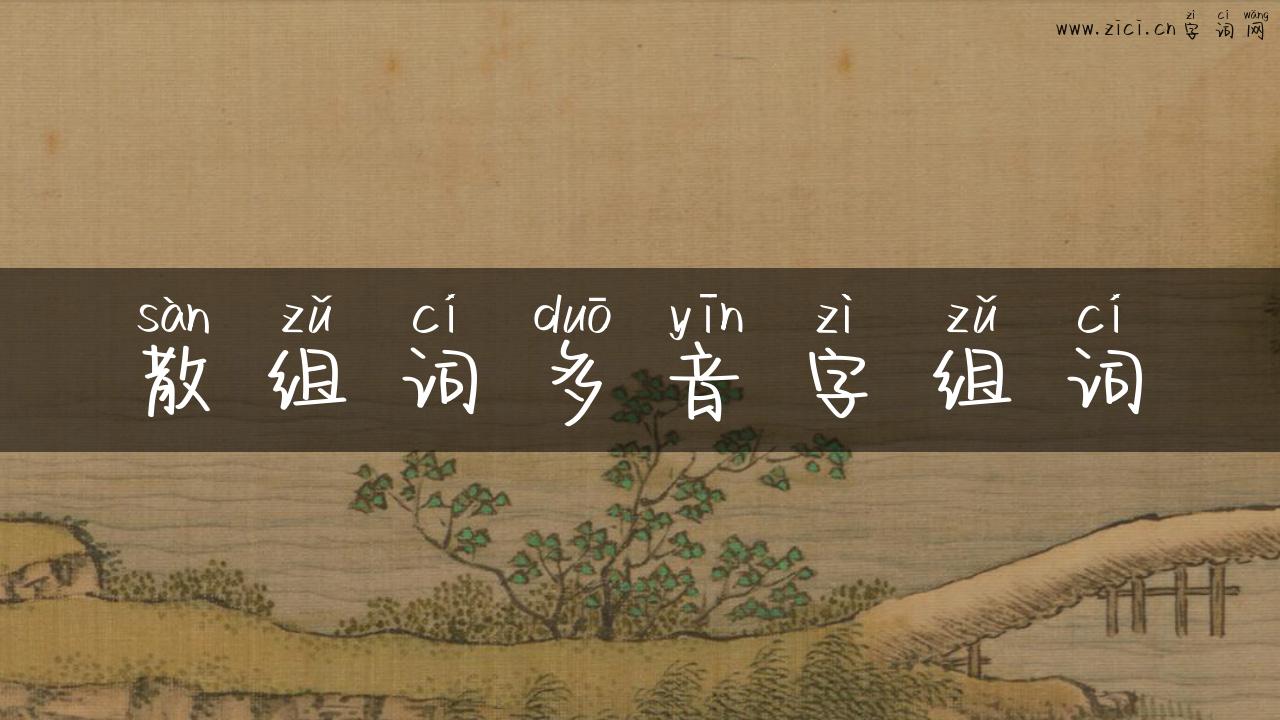 zì cí wǎng
www.zici.cn字词网
sàn zǔ cí duō yīn zì zǔ cí
散组词多音字组词